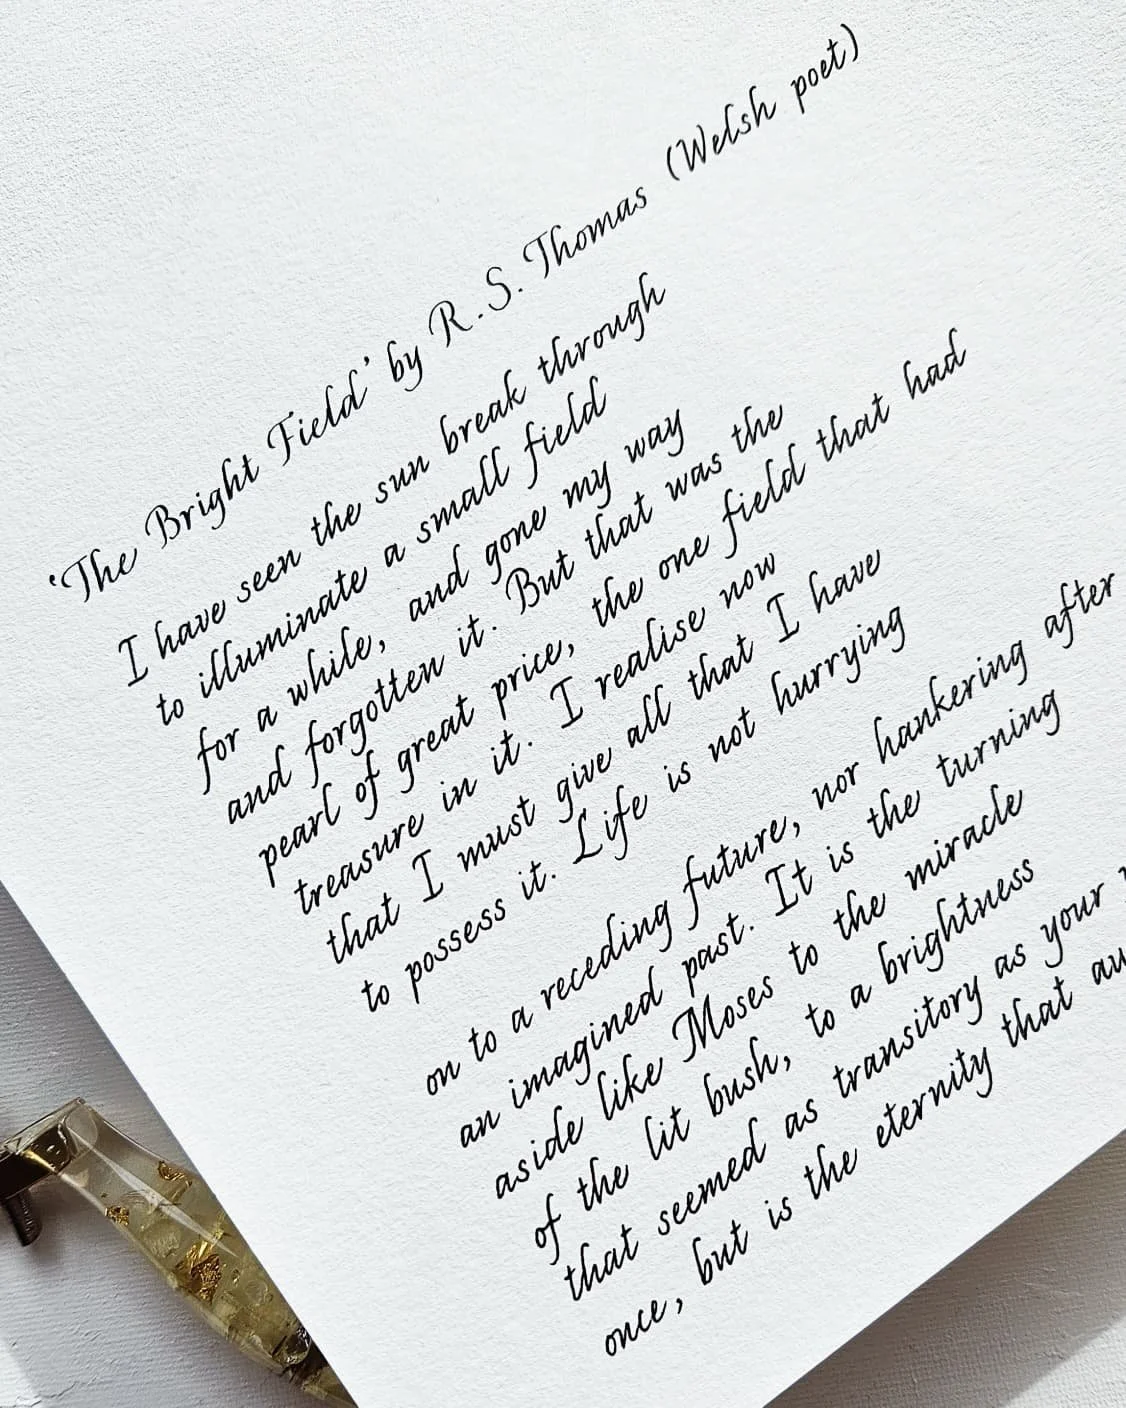 'The Bright Field' by R.S. Thomas (Welsh poet)
I have seen the sun break through
to illuminate a small field
for a while, and gone my way
and forgotten it. But that was the
pearl of great price, the one field that had
treasure in it. I realise now
that I must give all that I have
to possess it. Life is not hurrying
on to a receding future, nor hankering after
an imagined past. It is the turning
aside like Moses to the miracle
of the lit bush, to a brightness
that seemed as transitory as your
once, but is the eternity that